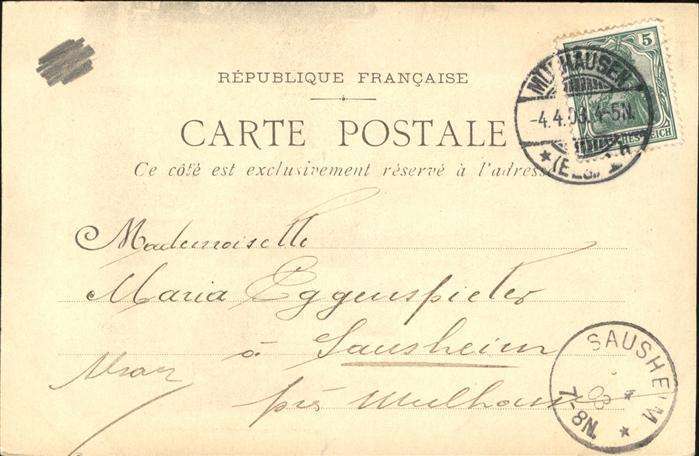 5
MULHAUSEN
-4.4.03.4-5N.
★(ELS.)1
RÉPUBLIQUE FRANÇAISE
CARTE POSTALE
Ce côté est exclusivement réservé à l'adresse
Mademoiselle
Maria Eggenspieler
à Sausheim
près Mulhouse
SAUSHEIM
7-8N.
★